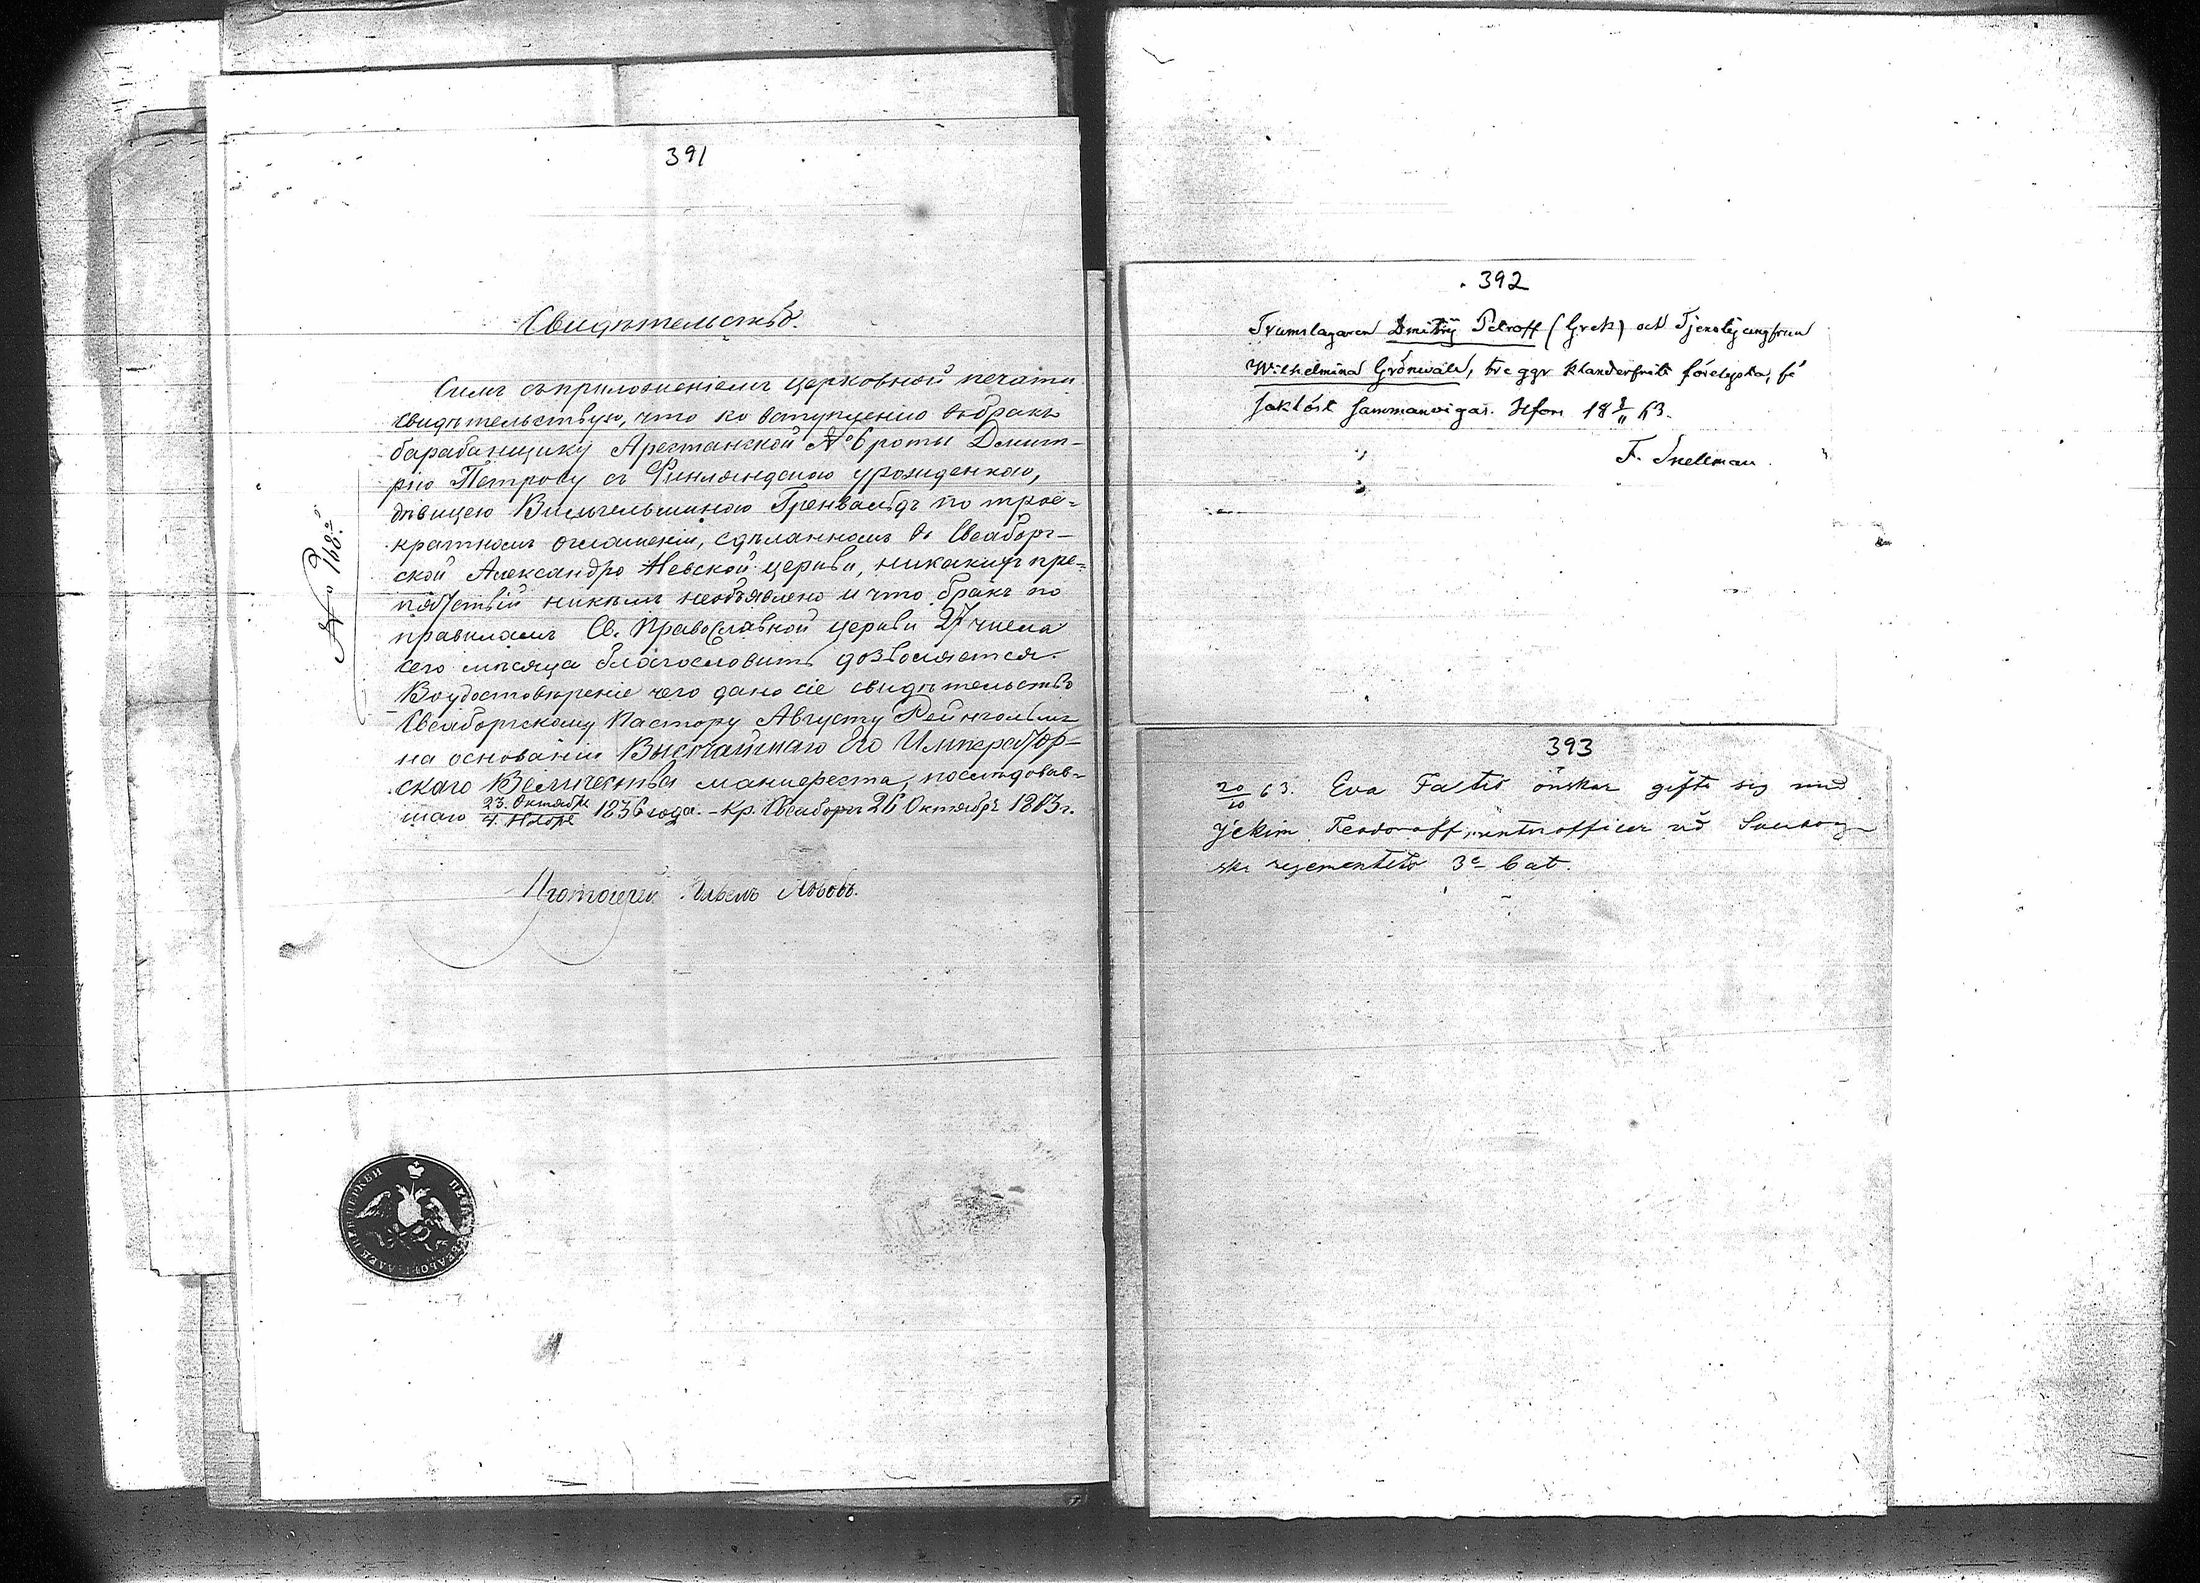 391
Свидѣтельство.
Симъ съ приложеніемъ церковной печати
свидѣтельствую, что ко вступленію въ бракъ
барабанщику Арестантской № 6 роты Дмит-
рію Петрову съ Финляндскою урожденкою,
дѣвицею Вильгельминою Гренвальдъ по трое-
кратномъ оглашеніи, сдѣланномъ въ Свеаборг-
ской Александро Невской церкви, никакихъ пре-
пятствій никѣмъ необъявлено и что бракъ по
правиламъ Св. Православной церкви 27 числа
сего мѣсяца благословить дозволяется.
Во удостовѣреніе чего дано сіе свидѣтельство
Свеаборгскому Пастору Августу Рейнгольму
на основаніи Высочайшаго Его Император-
скаго Величества манифеста, послѣдовав-
шаго 23. Октября / 4. Ноября 1836 года. – Кр. Свеаборгъ 26 Октября 1863 г.
Протоіерей Павелъ Львовъ.
№ 148.
392
Trumslagaren Dmitrij Petroff (Grek) och Tjenstejungfrun
Wilhelmina Grönwall, tre ggr klanderfritt förelysta, få
saklöst sammanvigas. Hfors 18 8/11 63.
F. Snellman.
393
20/10 63. Eva Fastid önskar gifta sig med
Jekim Feodoroff, unterofficer vid Sveaborg
ska regementets 3e bat.